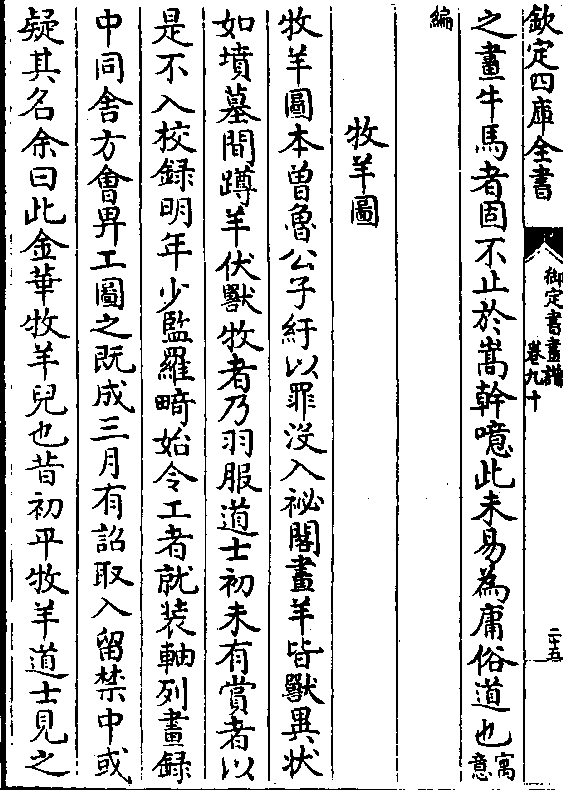 欽定四庫全書
御定書畫譜
卷九十
二十五
之畫牛馬者固不止於嵩幹噫此未易為庸俗道也寓意
編
牧羊圖
牧羊圖本曽魯公子紆以罪沒入祕閣畫羊皆獸異狀
如墳墓間蹲羊伏獸牧者乃羽服道士初未有賞者以
是不入校録明年少監羅畸始令工者就装軸列畫録
中同舎方會畀工圖之既成三月有詔取入留禁中或
疑其名余曰此金華牧羊兒也昔初平牧羊道士見之